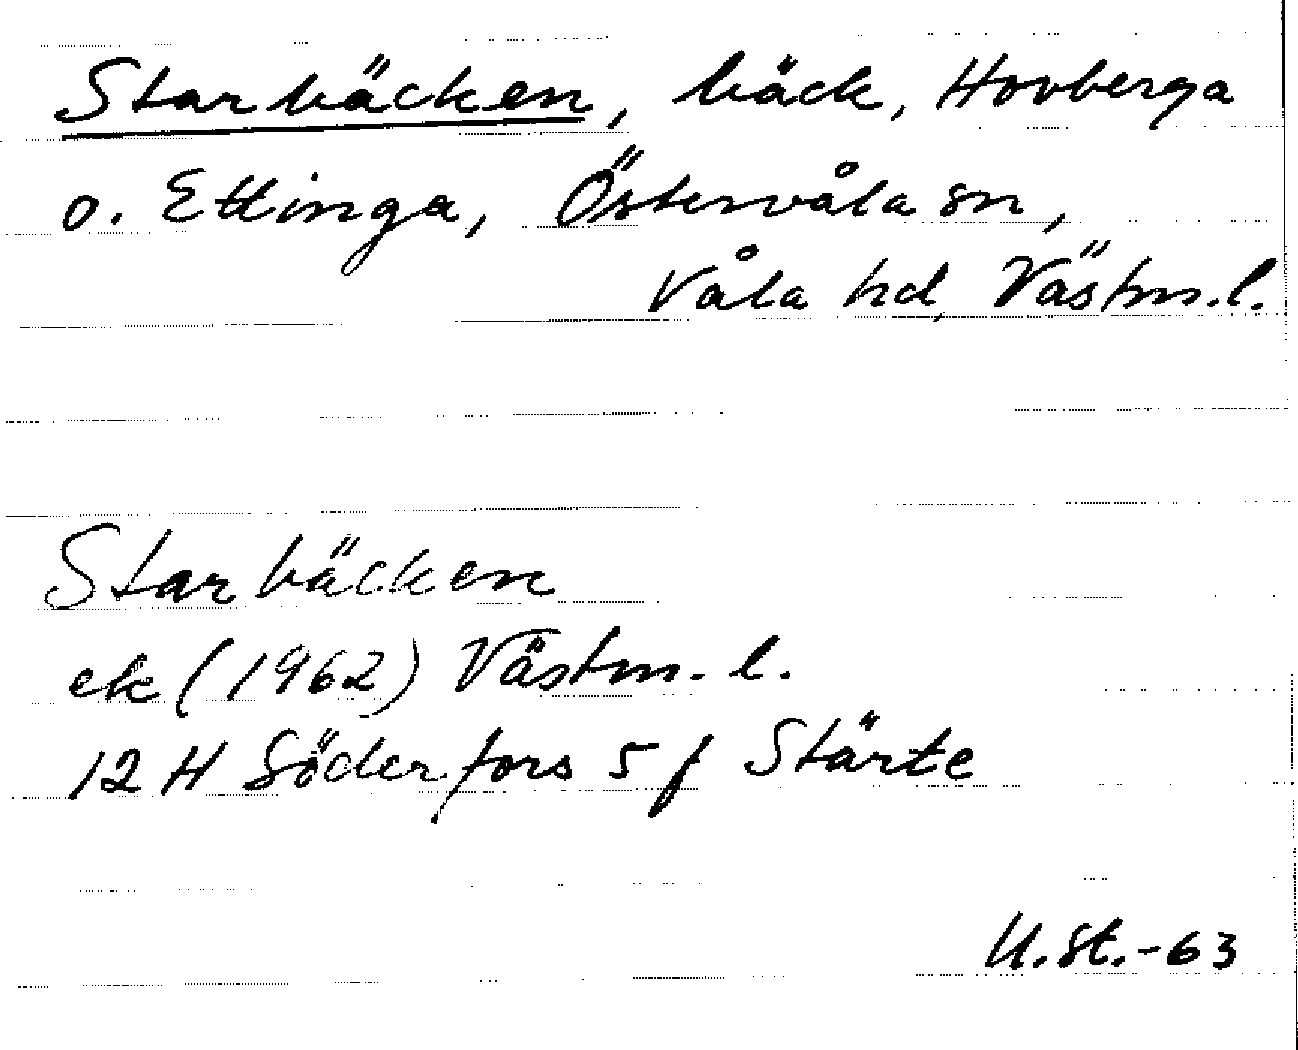 Starbäcken, bäck, Hovberga
o. Ettinga, Östervåla sn,
Våla hd, Västm. l.
Starbäcken
ek (1962) Västm. l.
12 H Söderfors 5 f Stärte
U.St.-63